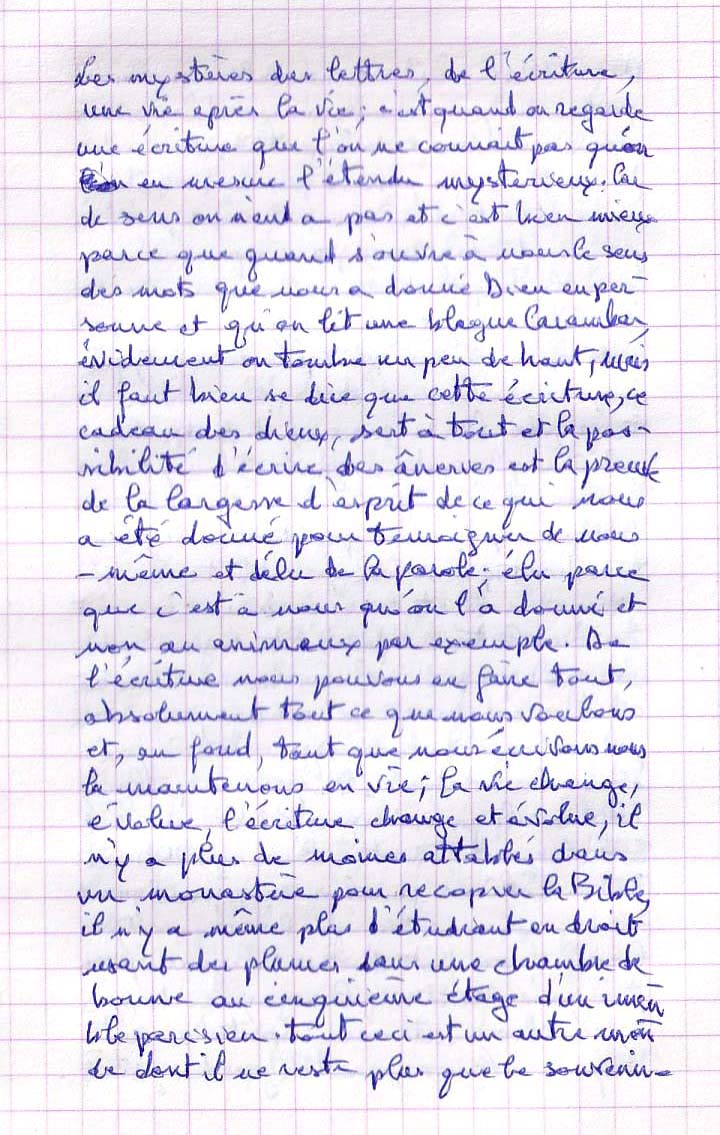 Les mystères des lettres, de l'écriture,
une vie après la vie; c'est quand on regarde
une écriture que l'on ne connait pas qu'on
en mesure l'étendu mysterieux. Car
de sens on n'en a pas et c'est bien mieux
parce que quand s'ouvre à nous le sens
des mots que nous a donné Dieu en per-
sonne et qu'on lit une blague Carambar,
évidement on tombe un peu de haut, mais
il faut bien se dire que cette écriture, ce
cadeau des dieux, sert à tout et la pos-
sibilité d'écrire des âneries est la preuve
de la largesse d'esprit de ce qui nous
a été donné pour témoigner de nous
-même et d'élu de la parole; élu parce
que c'est à nous qu'on l'a donné et
non au animaux par exemple. De
l'écriture nous pouvons en faire tout,
absolument tout ce que nous voulons
et, au fond, tant que nous écrivons nous
la maintenons en vie; la vie change,
évolue, l'écriture change et évolue, il
n'y a plus de moines attablés dans
un monastère pour recopier la Bible,
il n'y a même plus d'étudiant en droit
usant des plumes dans une chambre de
bonne au cinquième étage d'un immeu
ble parisien. tout ceci est un autre mon
de dont il ne reste plus que le souvenir-